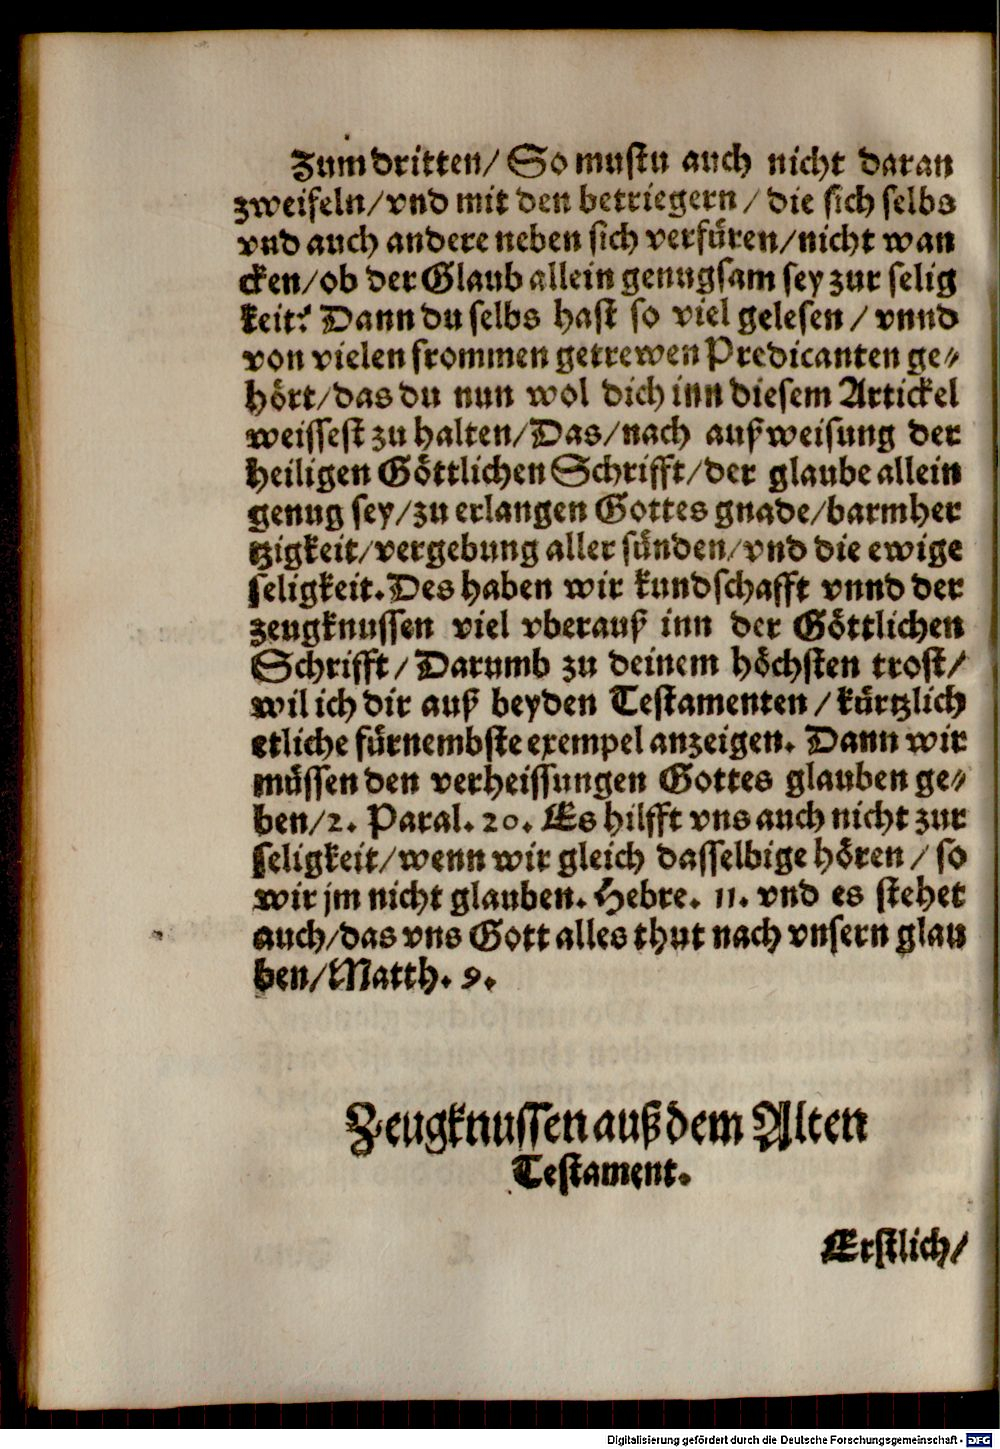 Zum dritten/ So mustu auch nicht daran
zweifeln/vnd mit den betriegern / die sich selbs
vnd auch andere neben sich verfüren/nicht wan
cken/ob der Glaub allein genugsam sey zur selig
keit? Dann du selbs hast so viel gelesen / vnnd
von vielen frommen getrewen Predicanten ge⸗
hört/das du nun wol dich inn diesem Artickel
weissest zu halten/Das/nach außweisung der
heiligen Göttlichen Schrifft/der glaube allein
genug sey/zu erlangen Gottes gnade/barmher
tzigkeit/vergebung aller sünden/vnd die ewige
seligkeit. Des haben wir kundschafft vnnd der
zeugknussen viel vberauß inn der Göttlichen
Schrifft / Darumb zu deinem höchsten trost/
wil ich dir auß beyden Testamenten / kürtzlich
etliche fürnembste exempel anzeigen. Dann wir
müssen den verheissungen Gottes glauben ge⸗
ben/2. Paral. 20. Es hilfft vns auch nicht zur
seligkeit/wenn wir gleich dasselbige hören / so
wir jm nicht glauben. Hebre. 11. vnd es stehet
auch/das vns Gott alles thut nach vnsern glau
ben/Matth. 9.
Zeugknussen auß dem Alten
Testament.
Erstlich/
Digitalisierung gefördert durch die Deutsche Forschungsgemeinschaft - DFG